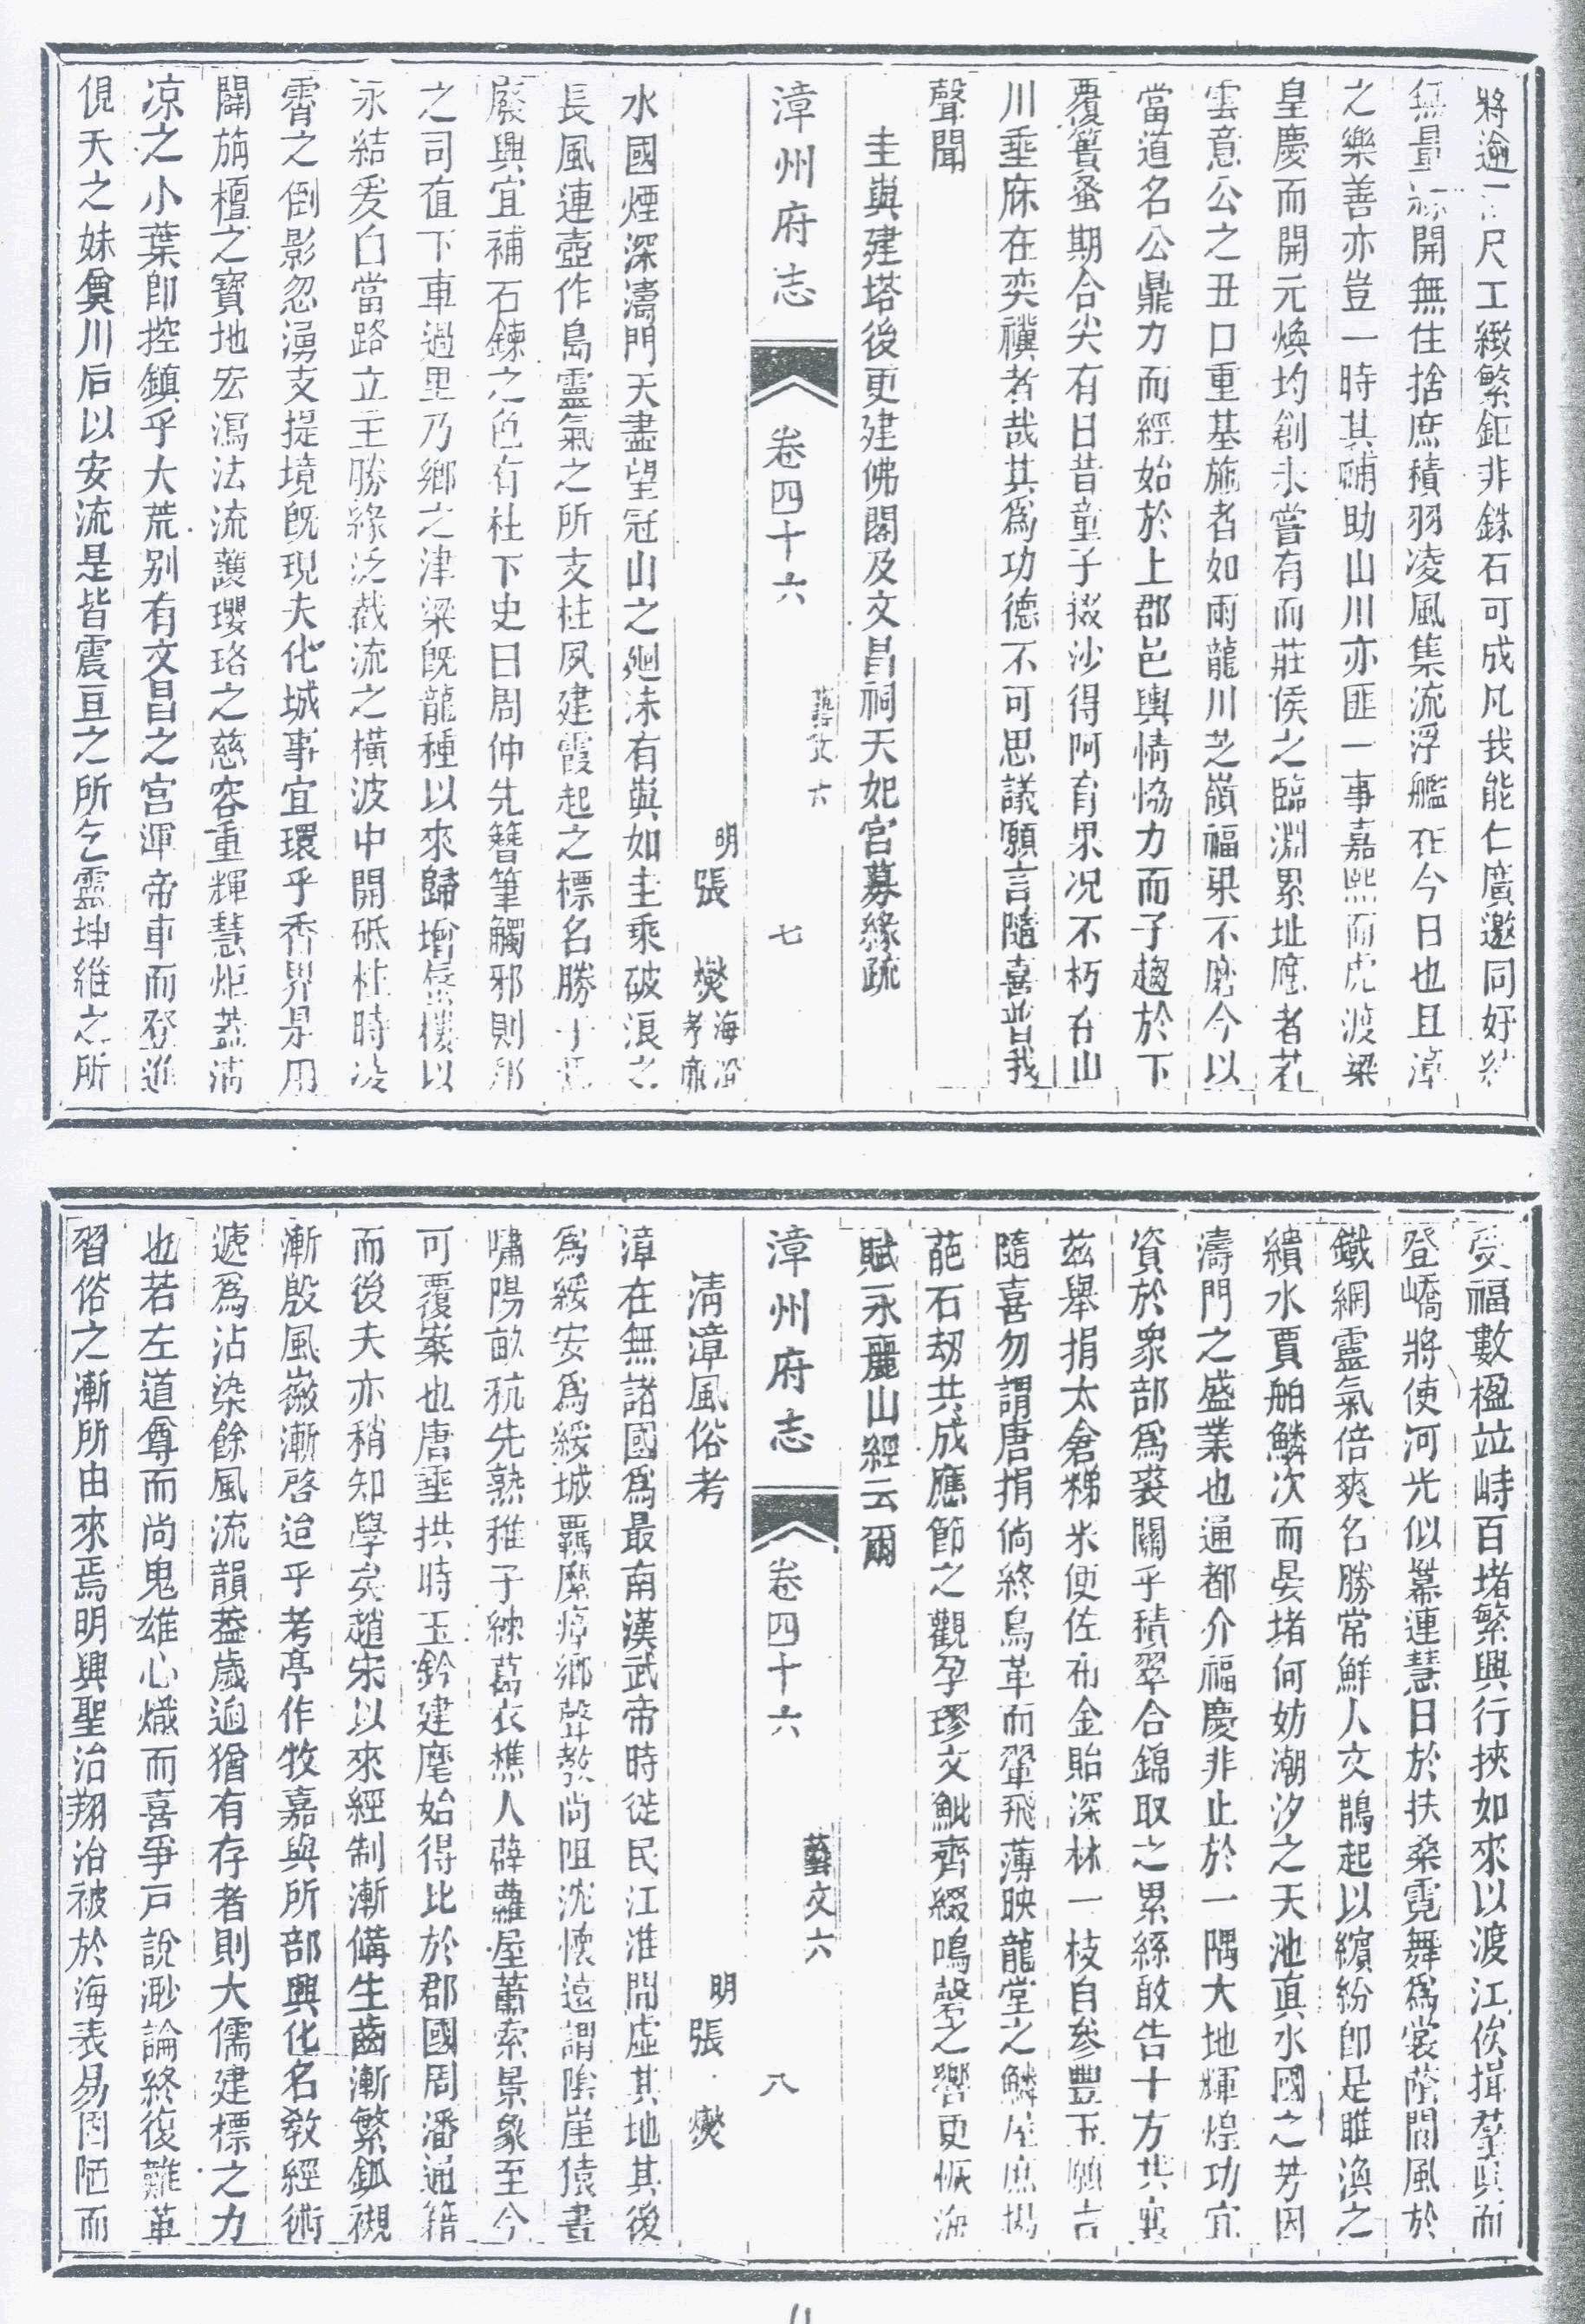 將逾百尺工緻繁鉅非銖石可成凡我能仁廣邀同好結
無量緣開無住捨庶積羽凌風集流浮艦在今日也且漳
之樂善亦豈一時其輔助山川亦匪一事嘉熙而虎渡梁
皇慶而開元煥圴創未嘗有而莊侯之臨淵累址應者若
雲意公之丑口重基施者如雨龍川芝嶺福果不磨今以
當道名公鼎力而經始於上郡邑輿情恊力而子趨於下
覆簣蚤期合尖有日昔童子掇沙得阿育果况不朽在山
川垂庥在奕禩者哉其為功德不可思議願言隨喜普我
聲聞
圭嶼建塔後更建佛閣及文昌祠天妃宮募緣疏
漳州府志
卷四十六
藝文六
七
明張燮海澄孝廉
水國煙深濤門天盡望冠山之廻洙有嶼如圭乘破浪之
長風連壺作島靈氣之所支柱夙建霞起之標名勝
廢興宜補石鍊之色有柱下史曰周仲先簪筆觸邪則
之司直下車過里乃鄉之津梁旣龍種以來歸增蜃樓以
永結爰白當路立主勝緣泛截流之橫波中開砥柱時凌
霄之倒影忽湧支提境旣現夫化城事宜環乎香界是用
闢旃檀之寶地宏瀉法流護瓔珞之慈容重輝慧炬葢滿
凉之小葉卽控鎮乎大荒别有文昌之宮運帝車而登進
俔天之妹奠川后以安流是皆震亘之所乞靈坤維之所
受福數楹竝峙百堵繁興行挾如來以渡江俟揖羣眞而
登嶠將使河光似冪連慧日於扶桑霓舞為裳蔭閬風於
鐵網靈氣倍爽名勝常鮮人文鵲起以繽紛卽是睢渙之
繢水賈舶鱗次而晏堵何妨潮汐之天池眞水國之芳因
濤門之盛業也通都介福慶非止於一隅大地輝煌功宜
資於衆部為裘關乎積翠合錦取之累絲敢告十方共襄
茲舉捐太倉稊米便佐布金貽深林一枝自參豐玉願言
隨喜勿謂唐捐倘終鳥革而翬飛薄映龍堂之鱗屋庶揚
葩石刧共成應節之觀孕璆文魮齊綴鳴磬之響更恢海
賦永麗山經云爾
漳州府志
卷四十六
藝文六
八
清漳風俗考
明張燮
漳在無諸國為最南漢武帝時徙民江淮間虛其地其後
為綏安為綏城覊縻瘴鄉聲敎尚阻沈懷遠謂陰崖猿晝
嘯陽畝秔先熟稚子練葛衣樵人薜蘿屋蕭索景象至今
可覆案也唐垂拱時玉鈐建麾始得比於郡國周潘通籍
而後夫亦稍知學矣趙宋以來經制漸備生齒漸繁鉱覵
漸殷風嶶漸啓迨乎考亭作牧嘉與所部興化名敎經術
遞為沾染餘風流韻葢歲逈猶有存者則大儒建標之力
也若左道尊而尚鬼雄心熾而喜爭戸說渺論終復難革
習俗之漸所由來焉明興聖治翔洽被於海表易固陋而